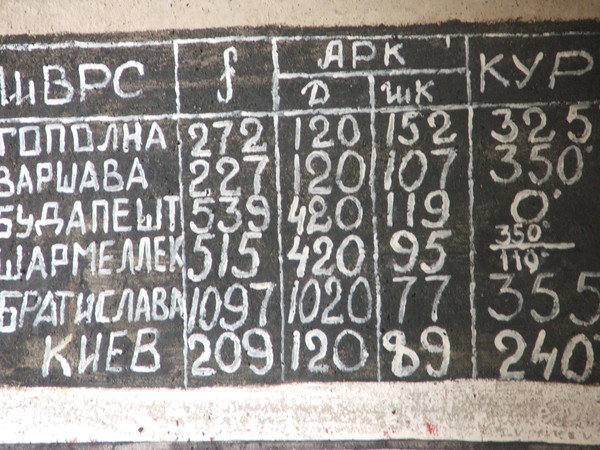 ШВРС f АРК КУР
Д ШК
ТОПОЛНА 272 120 152 325
ВАРШАВА 227 120 107 350°
БУДАПЕШТ 539 420 119 0°
ШАРМЕЛЛЕК 515 420 95 350° 110°
БРАТИСЛАВА 1097 1020 77 355
КИЕВ 209 120 89 240°